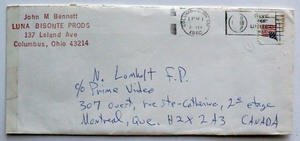 John M Bennett
LUNA BISONTE PRODS
137 Leland Ave
Columbus, Ohio 43214
PM
1980
N. Lomholt F.P.
c/o Prime Video
307 ouest, rue Ste-Catherine, 2e étage
Montreal, Que. H2X 2A3 CANADA